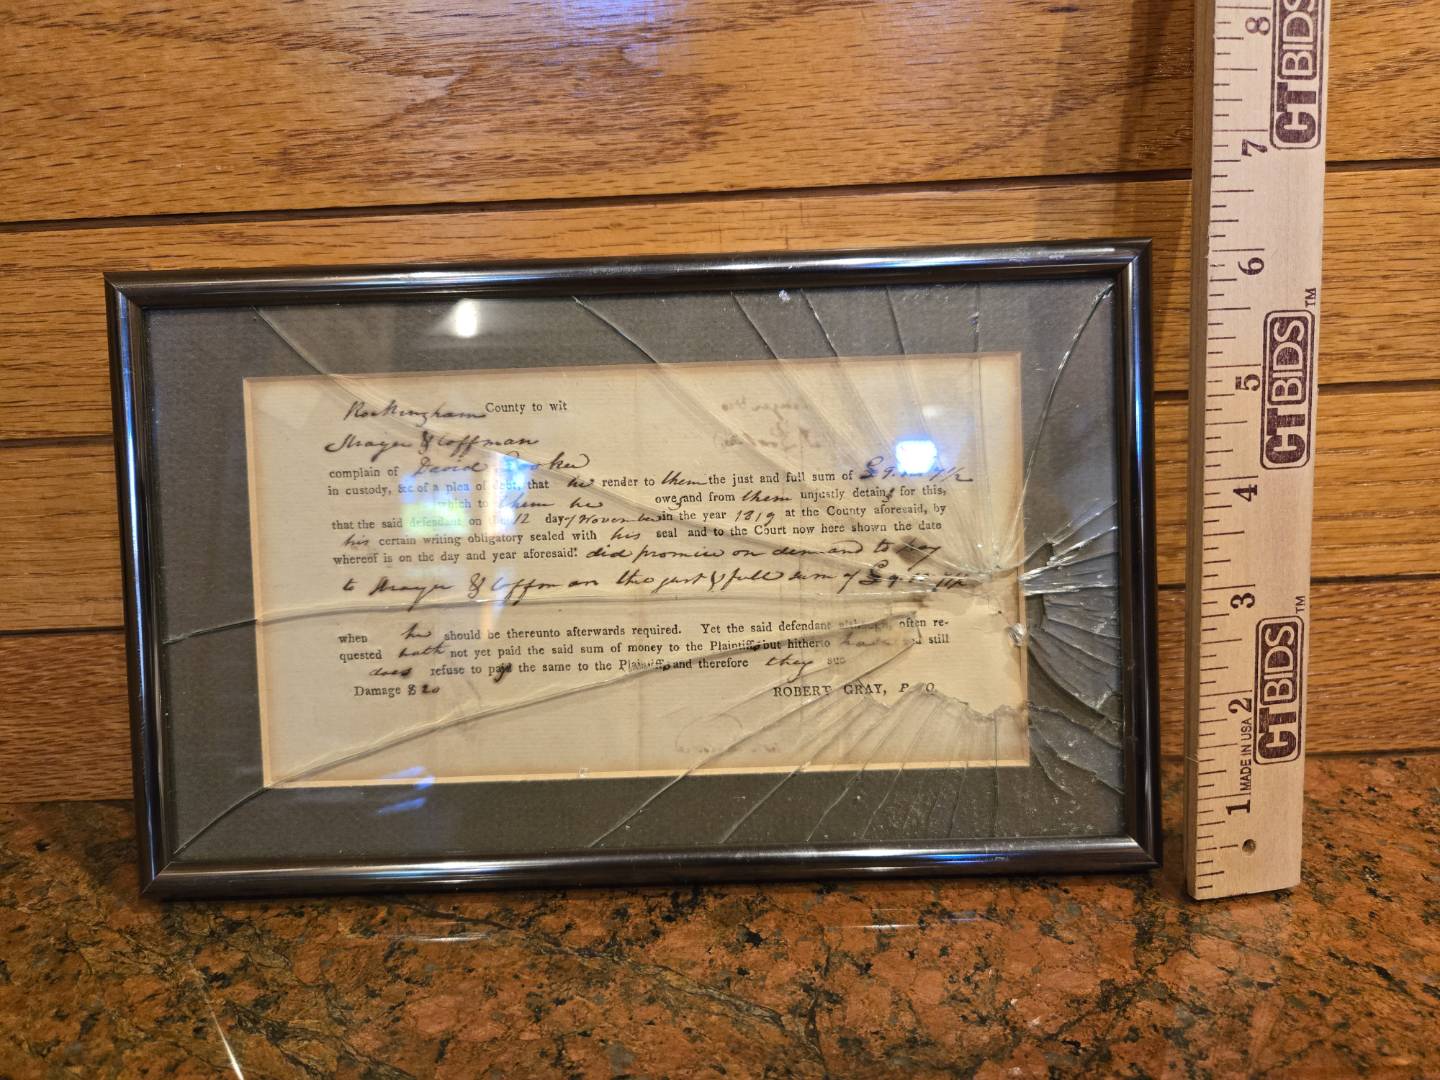 Rockingham County to wit
Strayer & Coffman
complain of David
in custody, &c. of a plea of debt, that he render to them the just and full sum of £9.
which to them he owes, and from them unjustly detains for this,
that the said defendant on the 12 day of November in the year 1819 at the County aforesaid, by
his certain writing obligatory sealed with his seal and to the Court now here shown the date
whereof is on the day and year aforesaid: did promise on demand to pay
to Strayer & Coffman the just & full sum of £9.
when he should be thereunto afterwards required. Yet the said defendant although often re-
quested hath not yet paid the said sum of money to the Plaintiffs but hitherto still
does refuse to pay the same to the Plaintiffs and therefore they sue
Damage $20
ROBERT GRAY, P. Q.
8
CTBIDS
7
6
CTBIDS™
5
4
3
CTBIDS™
2
MADE IN USA
1